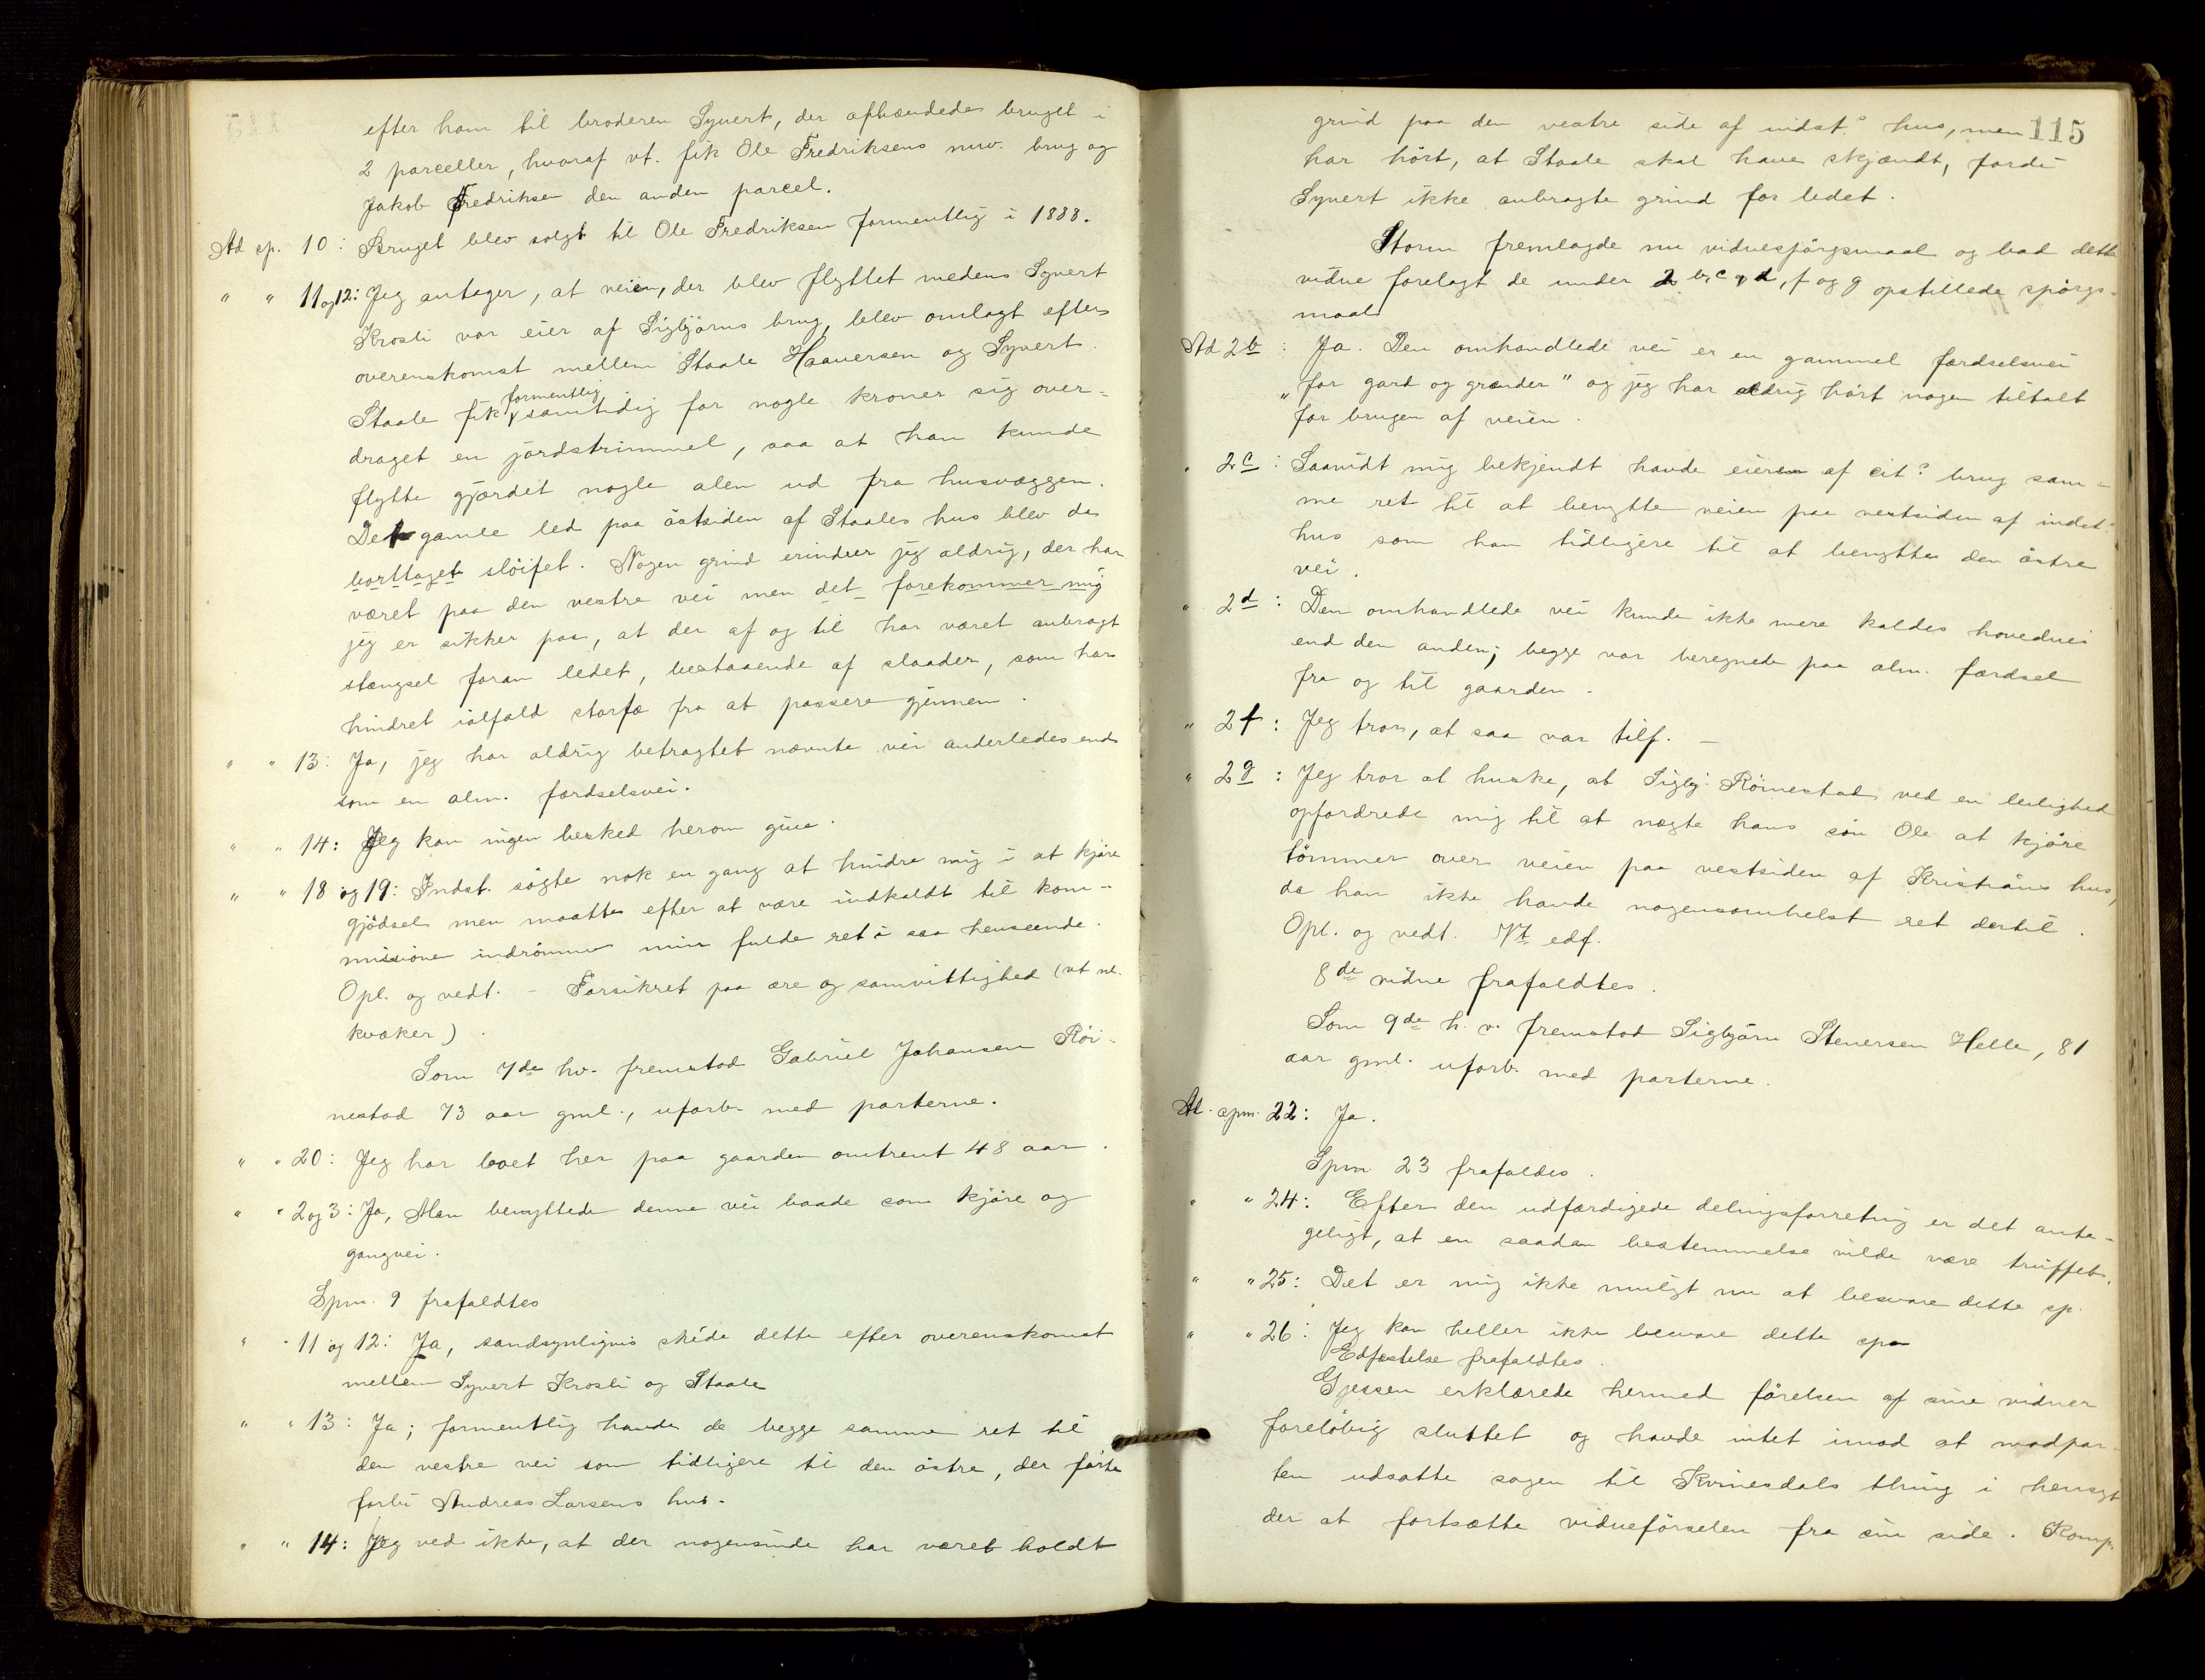 efter ham til broderen Syvert, der afhændede bruget i
2 parceller, hvoraf vt. fik Ole Fredriksens nuv. brug og
Jakob Fredriksen den anden parcel.
Ad sp. 10: Bruget blev solgt til Ole Fredriksen formentlig i 1888.
" " 11 og 12: Jeg antager, at veien, der blev flyttet medens Syvert
Krosli var eier af Sigbjørns brug, blev omlagt efter
overenskomst mellem Staale Haaversen og Syvert.
formentlig
Staale fik samtidig for nogle kroner sig over-
draget en jordstrimmel, saa at han kunde
flytte gjærdet nogle alen ud fra husvæggen.
Det gamle led paa östsiden af Staales hus blev da
borttaget slöifet. Nogen grind erindrer jeg aldrig, der har
været paa den vestre vei men det forekommer mig
jeg er sikker paa, at der af og til har været anbragt
stængsel foran ledet, bestaaende af slaader, som har
hindret ialfald storfæ fra at passere gjennem.
" " 13: Ja, jeg har aldrig betragtet nævnte vei anderledes end
som en alm. færdselsvei.
" " 14: Jeg kan ingen besked herom give.
" " 18 og 19: Indst. søgte nok en gang at hindre mig i at kjøre
gjödsel men maatte efter at være indkaldt til kom-
missionen indrömme min fulde ret i saa henseende.
Opl. og vedt. – Forsikret paa ære og samvittighed (vt. nl.
kvæker).
Som 7de hv. fremstod Gabriel Johansen Röi-
nestad 73 aar gml., uforb. med parterne.
" " 20: Jeg har boet her paa gaarden omtrent 48 aar.
" " 2 og 3: Ja, Man benyttede denne vei baade som kjöre og
gangvei.
Spm. 9 frafaldtes
" " 11 og 12: Ja, sandsynligvis skéde dette efter overenskomst
mellem Syvert Krosli og Staale
" " 13: Ja; formentlig havde de begge samme ret til
den vestre vei som tidligere til den östre, der förte
forbi Andreas Larsens hus.
" " 14: Jeg ved ikke, at der nogensinde har været holdt
115
grind paa den vestre side af indst.s hus, men
har hört, at Staale skal have skjændt, fordi
Syvert ikke anbragte grind for ledet.
Storm fremlagde nu vidnespörgsmaal og bad dette
vidne forelagt de under 2 b, c, d, f og g opstillede spörgs-
maal
Ad 2b: Ja. Den omhandlede vei er en gammel færdselsvei
"for gard og grander" og jeg har aldrig hört nogen tiltalt
for brugen af veien.
" 2c: Saavidt mig bekjendt havde eieren af cit.s brug sam-
me ret til at benytte veien paa vestsiden af indst.s
hus som han tidligere til at benytte den östre
vei.
" 2d: Den omhandlede vei kunde ikke mere kaldes hovedvei
end den anden; begge var beregnede paa alm. færdsel
fra og til gaarden.
" 2f: Jeg tror, at saa var tilf. –
" 2g: Jeg tror at huske, at Sigbj. Röinestad ved en leilighed
opfordrede mig til at nægte hans sön Ole at kjöre
tömmer over veien paa vestsiden af Kristians hus,
da han ikke havde nogensomhelst ret dertil.
Opl. og vedt. Vt. edf.
8de vidne frafaldtes.
Som 9de h. v. fremstod Sigbjörn Stenersen Helle, 81
aar gml. uforb. med parterne.
Ad. spm. 22: Ja.
Spm. 23 frafaldes.
" " 24: Efter den udfærdigede delingsforretnig er det anta-
geligt, at en saadan bestemmelse vilde være truffet.
" " 25: Det er mig ikke muligt nu at besvare dette sp.
" " 26: Jeg kan heller ikke besvare dette spm
Edfæstelse frafaldtes.
Gjessen erklærede hermed förelsen af sine vidner
foreløbig sluttet og havde intet imod at modpar-
ten udsatte sagen til Kvinesdals thing i hensigt
der at fortsætte vidneförselen fra sin side. Komp.